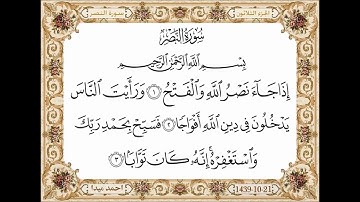 الجزء الثلاثون
سورة النصر
سُورَةُ النَّصْرِ
بِسْمِ اللَّهِ الرَّحْمَٰنِ الرَّحِيمِ
إِذَا جَاءَ نَصْرُ اللَّهِ وَالْفَتْحُ ١ وَرَأَيْتَ النَّاسَ
يَدْخُلُونَ فِي دِينِ اللَّهِ أَفْوَاجًا ٢ فَسَبِّحْ بِحَمْدِ رَبِّكَ
وَاسْتَغْفِرْهُ إِنَّهُ كَانَ تَوَّابًا ٣
احمد عبدا
1439-10-21